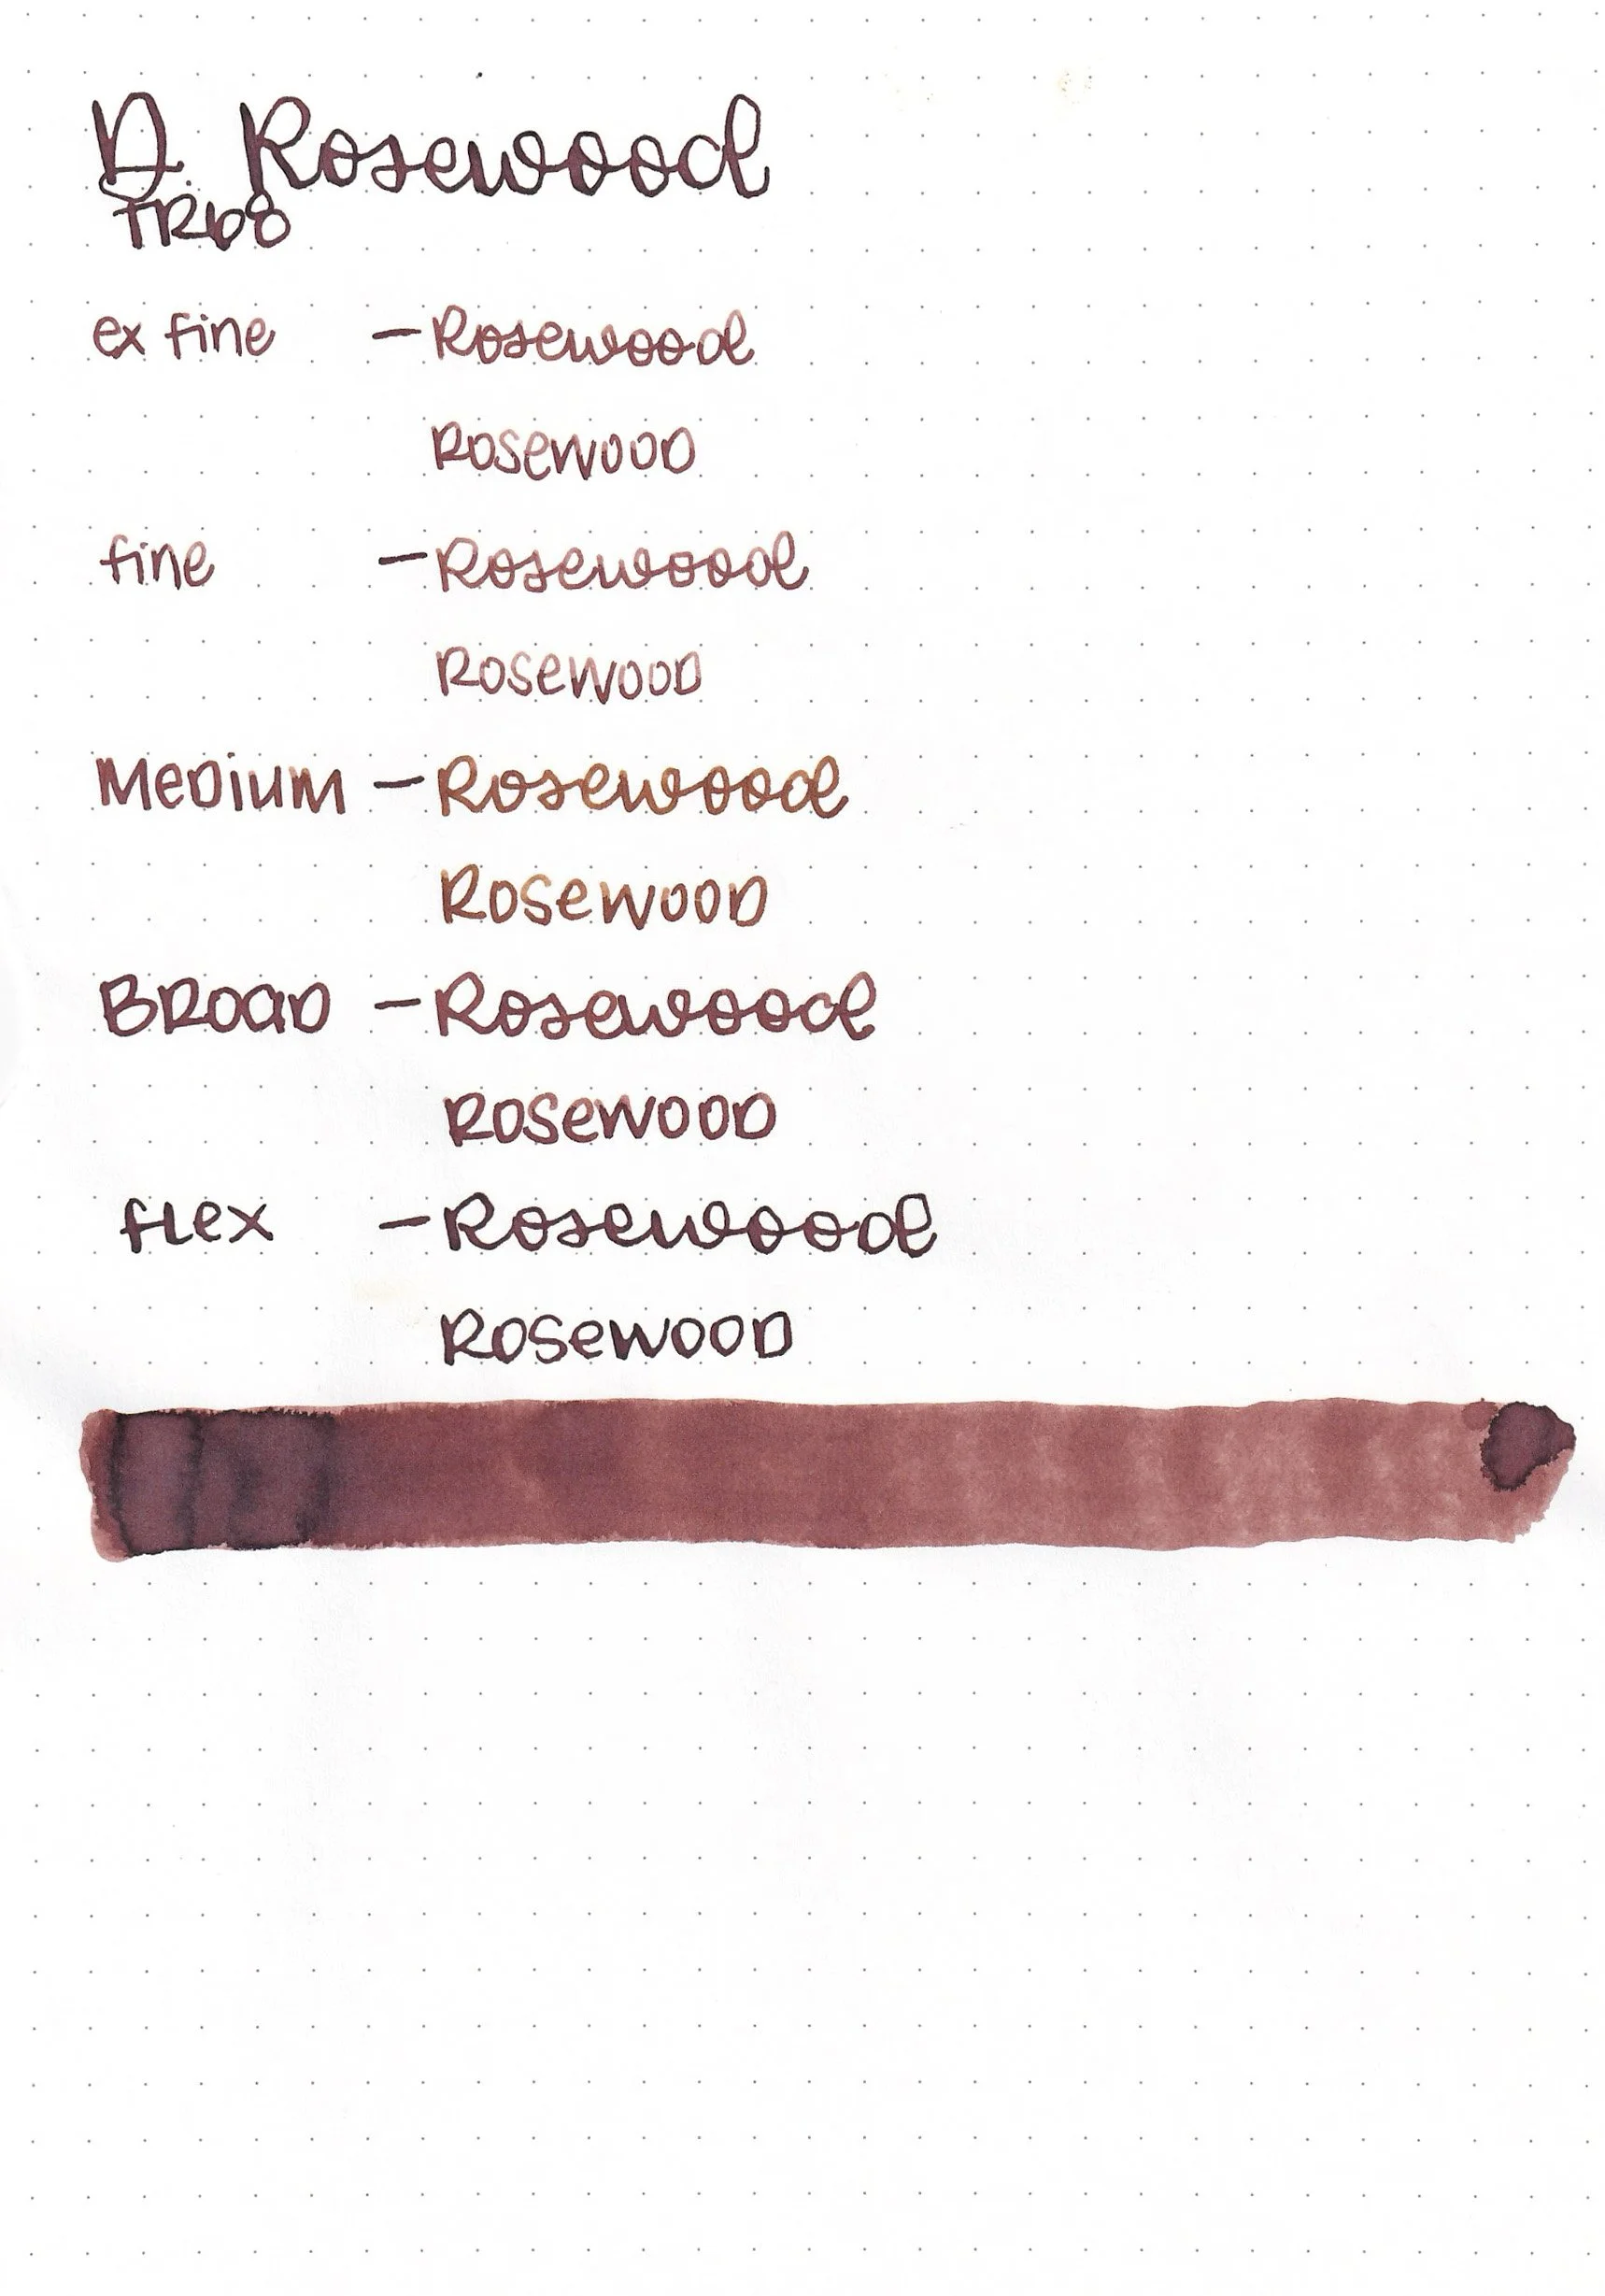 D. Rosewood
TR68
ex fine — Rosewood
Rosewood
fine — Rosewood
Rosewood
Medium — Rosewood
Rosewood
Broad — Rosewood
Rosewood
flex — Rosewood
Rosewood